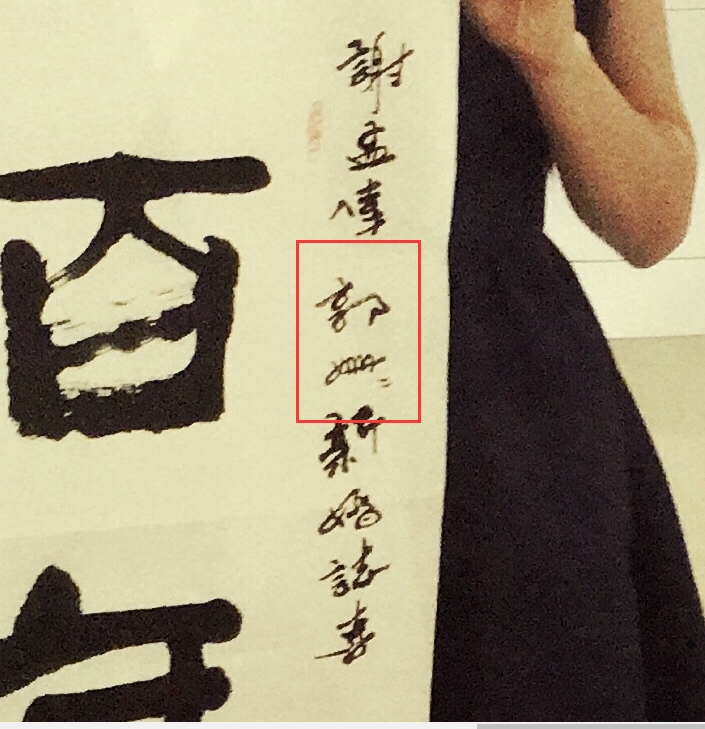 謝孟偉郭姍〻新婚誌喜
百年